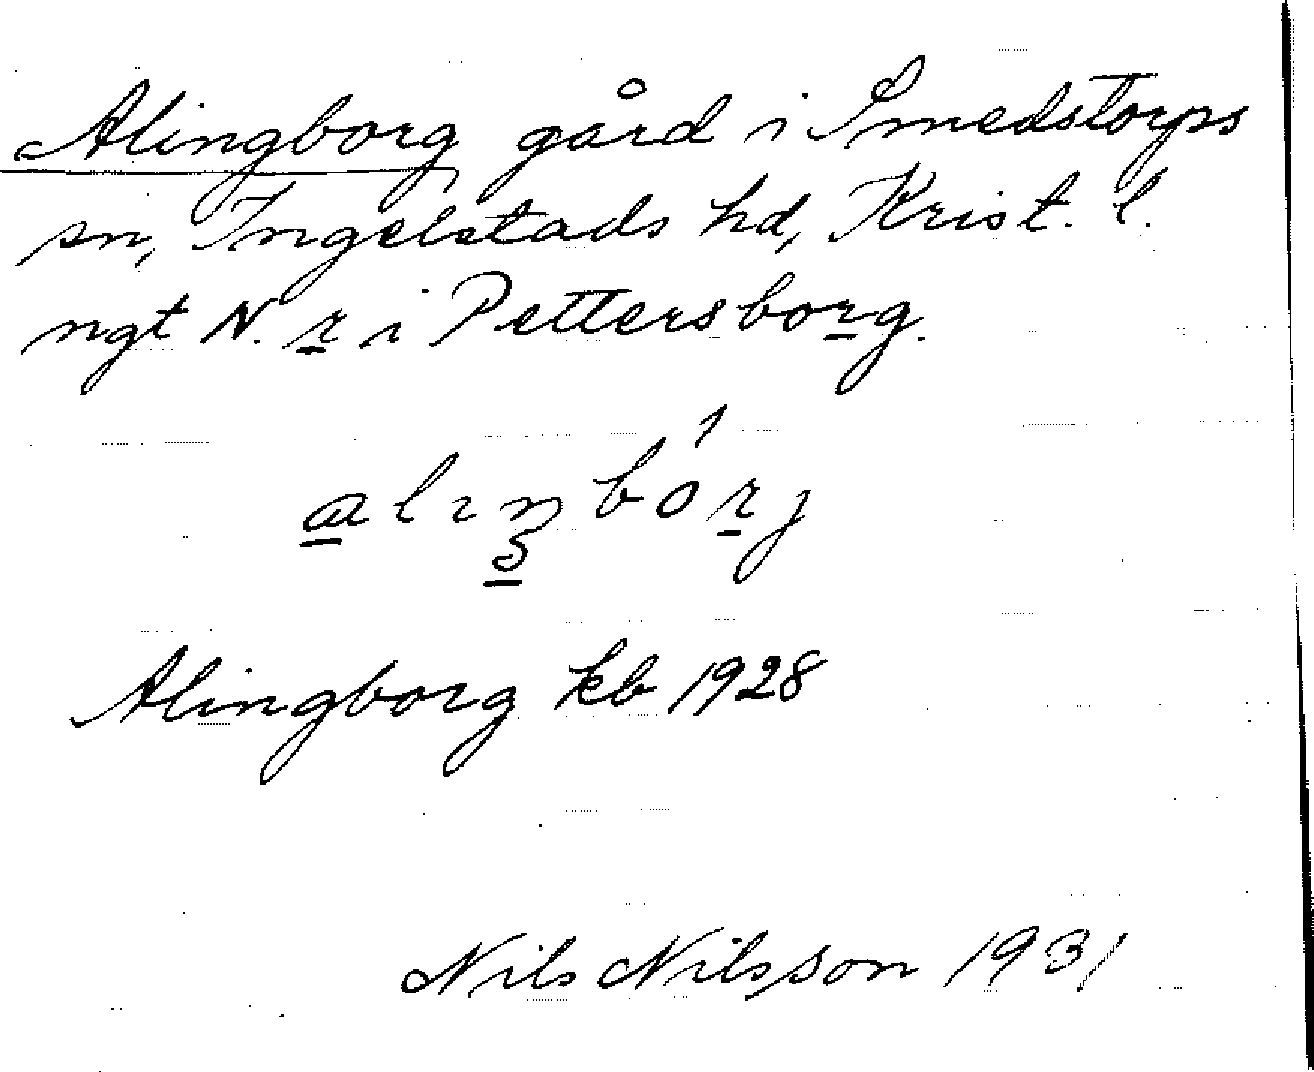 Alingborg gård i Smedstorps
sn, Ingelstads hd, Krist. l.
ngt N. r i Pettersborg.
Alingborg kb 1928
Nils Nilsson 1931